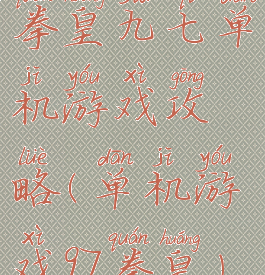 拳皇九七单
jī yóu xì gōng
机游戏攻
lüè dān jī yóu
略(单机游
xì quán huáng
戏97拳皇)